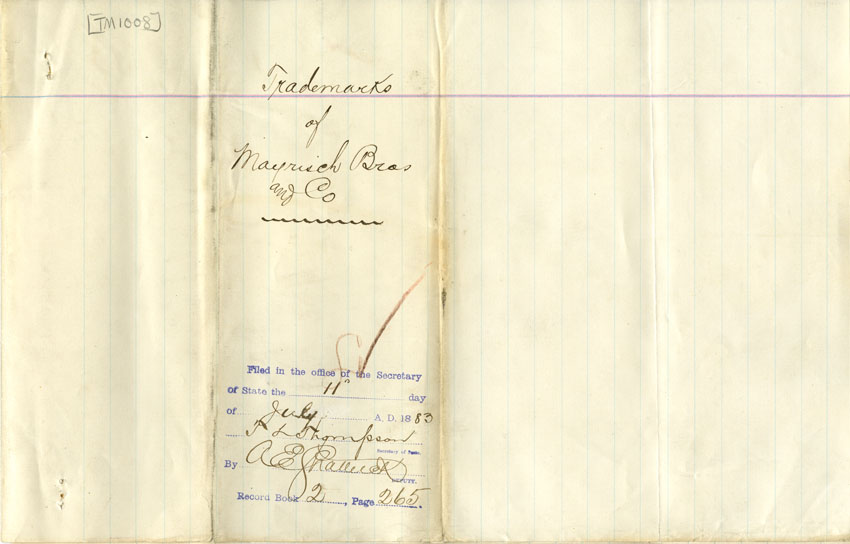 [TM1008]
Trademarks
of
Mayrisch Bros
and Co
Filed in the office of the Secretary
of State the 11" day
of July A. D. 1883
T L Thompson
Secretary of State.
By A E Shattuck
DEPUTY.
Record Book 2, Page 265.